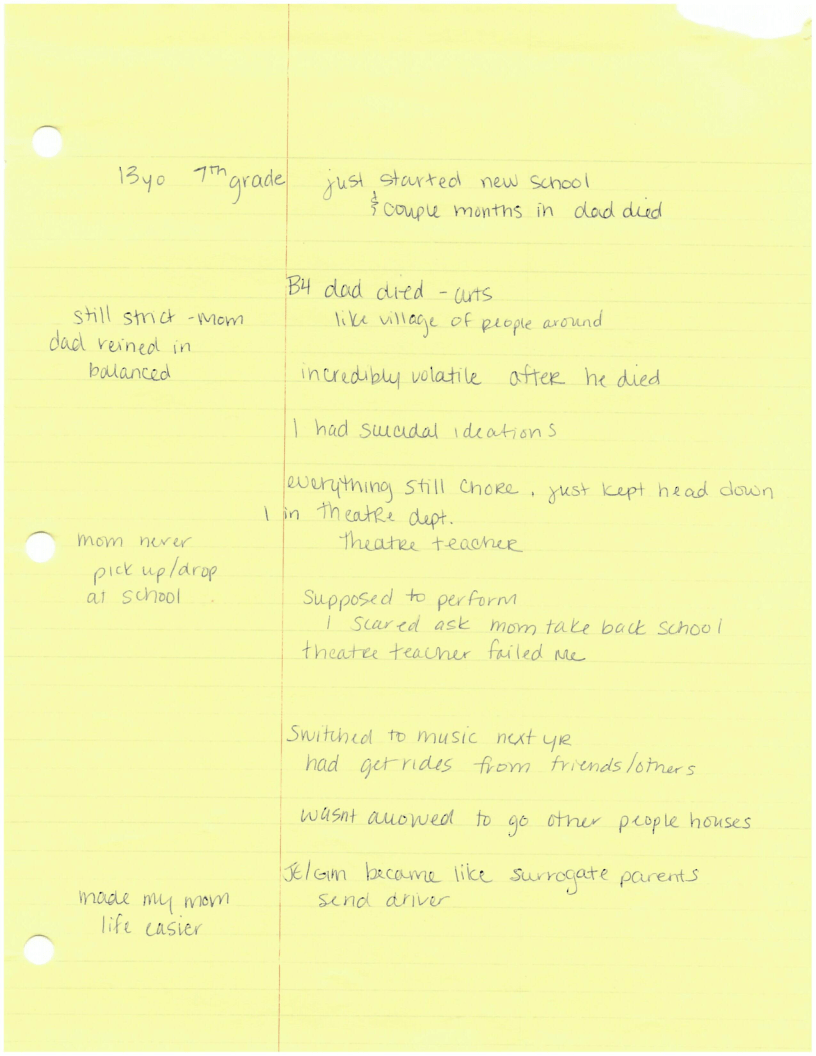 13yo 7th grade just started new school
& couple months in dad died
B4 dad died - arts
still strict - mom like village of people around
dad reined in
balanced incredibly volatile after he died
I had suicidal ideations
everything still chore, just kept head down
I in theatre dept.
mom never theatre teacher
pick up/drop
at school supposed to perform
I scared ask mom take back school
theatre teacher failed me
Switched to music next yr
had get rides from friends/others
wasnt allowed to go other people houses
JE/GM became like surrogate parents
made my mom send driver
life easier